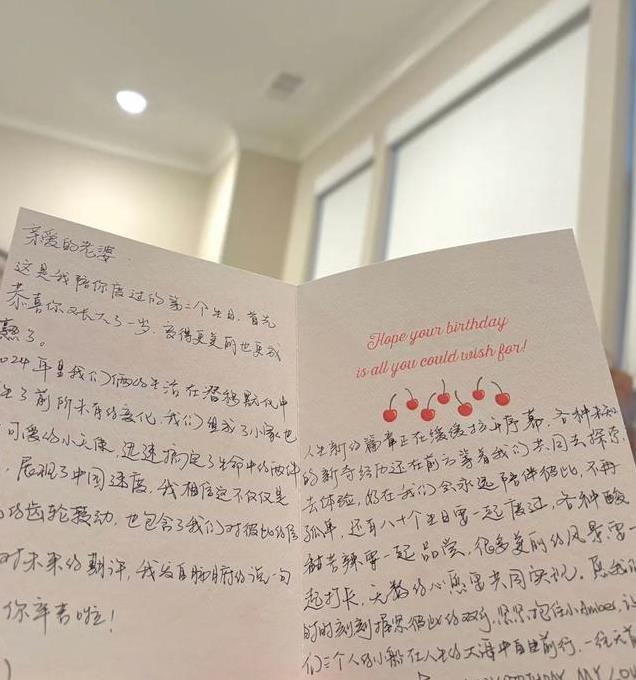 亲爱的老婆
这是我陪你度过的第二个生日,首先
恭喜你又长大了一岁,变得更美丽也更成
熟了。
024年是我们俩的生活在潜移默化中
生了前所未有的变化,我们组成了小家也
可爱的小天使,迅速搞定了生命中的两件
,展现了中国速度,我相信这不仅仅是
的齿轮转动,也包含了我们对彼此的信
对未来的期许,我发自肺腑的说一句
你辛苦啦!
Hope your birthday
is all you could wish for!
人生新的篇章正在缓缓拉开序幕,各种未知
的新奇经历还在前方等着我们共同去探索,
去体验,好在我们会永远陪伴彼此,不再
孤单,还有八十个生日要一起度过,各种酸
甜苦辣要一起品尝,很多美丽的风景要一
起打卡,无数的心愿要共同实现。愿我们
时时刻刻握紧彼此的双手,紧紧抱住小Amber,让
们三个人的小船在人生的大海中自由前行,一往无前
BIRTHDAY MY LOV